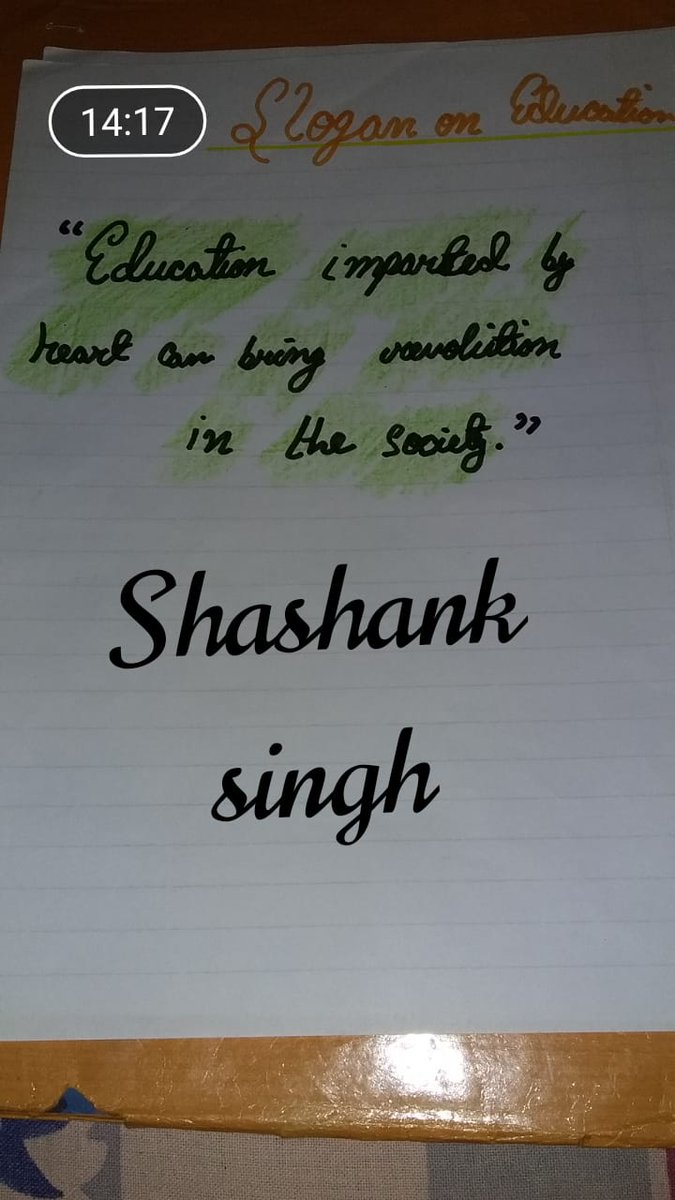 14:17
Slogan on Education
“Education imparted by
heart can bring revolution
in the society.”
Shashank
singh